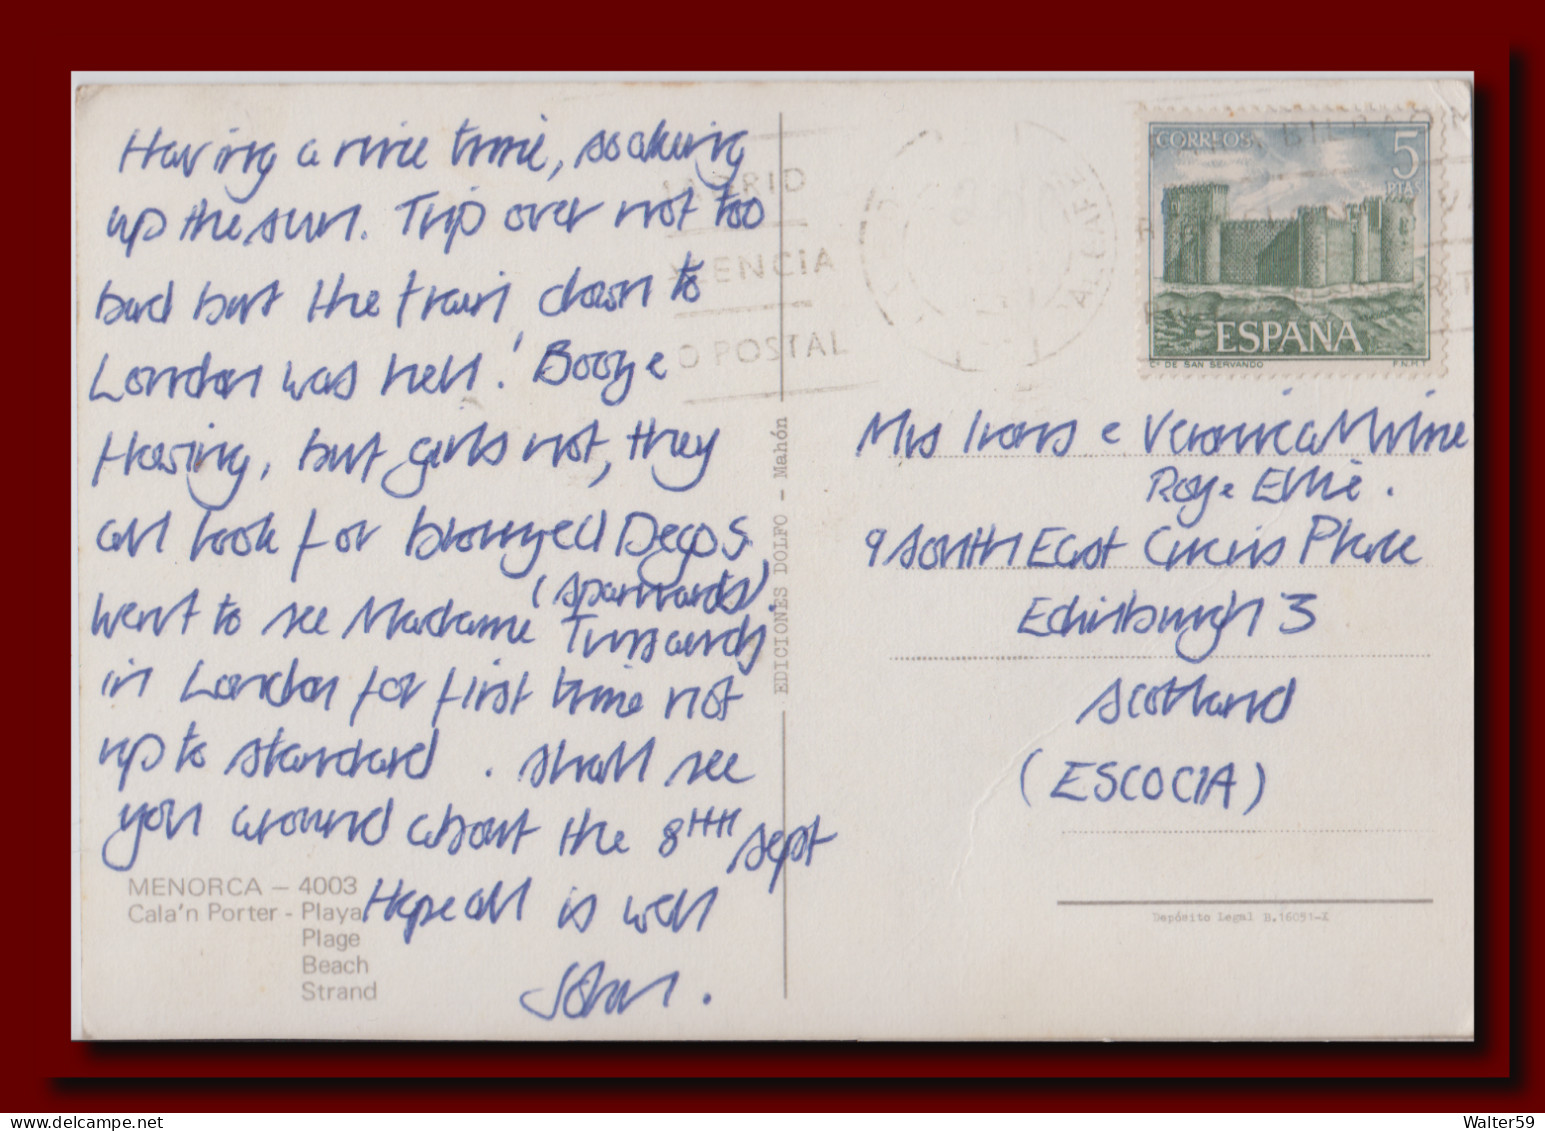 Having a nice time, soaking
up the sun. Trip over not too
bad but the train down to
London was hell! Booze
flowing, but girls not, they
all look for bronzed Degos
(Spaniards).
went to see Madame Tussauds
in London for first time not
up to standard. shall see
you around about the 8TH sept
Hope all is well
John.
MENORCA – 4003
Cala'n Porter - Playa
Plage
Beach
Strand
EDICIONES DOLFO - Mahón
O POSTAL
CORREOS
5
PTAS
ESPAÑA
Cº DE SAN SERVANDO
F.N.M.T
Mrs Irons & Veronica Milne
Roy & Ellie.
9 South East Circus Place
Edinburgh 3
Scotland
(ESCOCIA)
Depósito Legal B.16051-X
Walter59